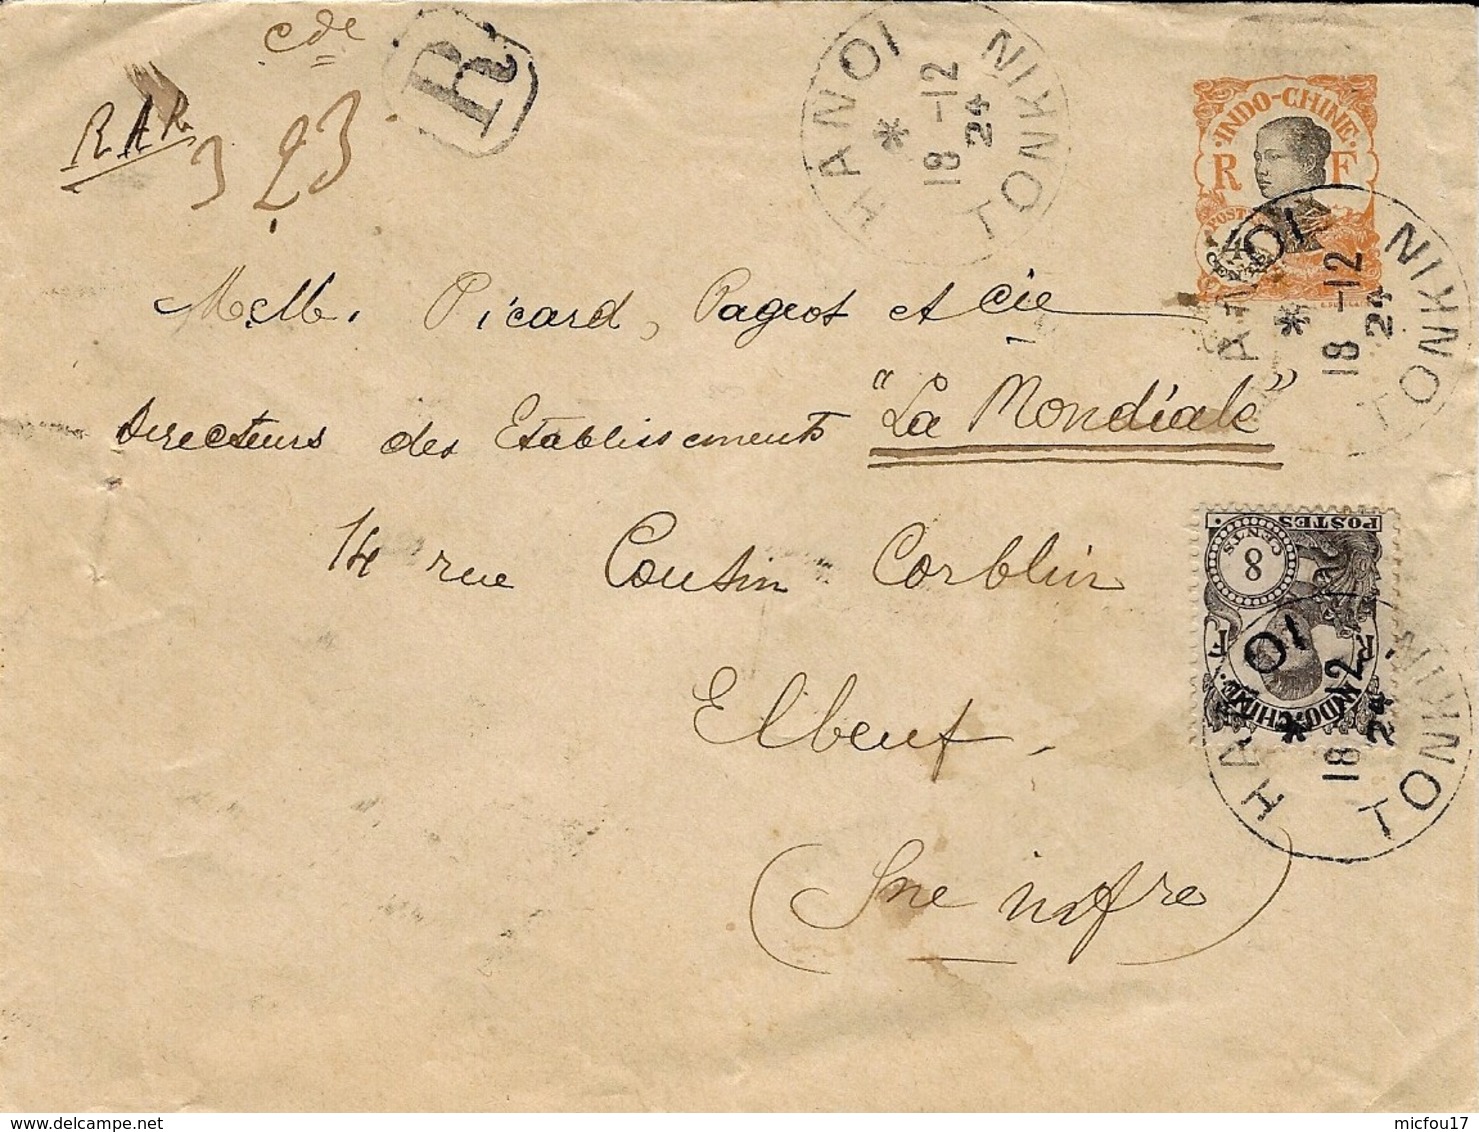 cde
R
RAR
323
HANOI TONKIN
18-12
24
INDO-CHINE
R F
POSTES
CENTS
HANOI TONKIN
18-12
24
Mess. Picard, Pageot et Cie
Directeurs des Etablissements "La Mondiale"
14 rue Cousin Corblin
Elbeuf.
(Sne infre)
POSTES
8
CENTS
R F
INDO-CHINE
HANOI TONKIN
18-12
24
micfou17